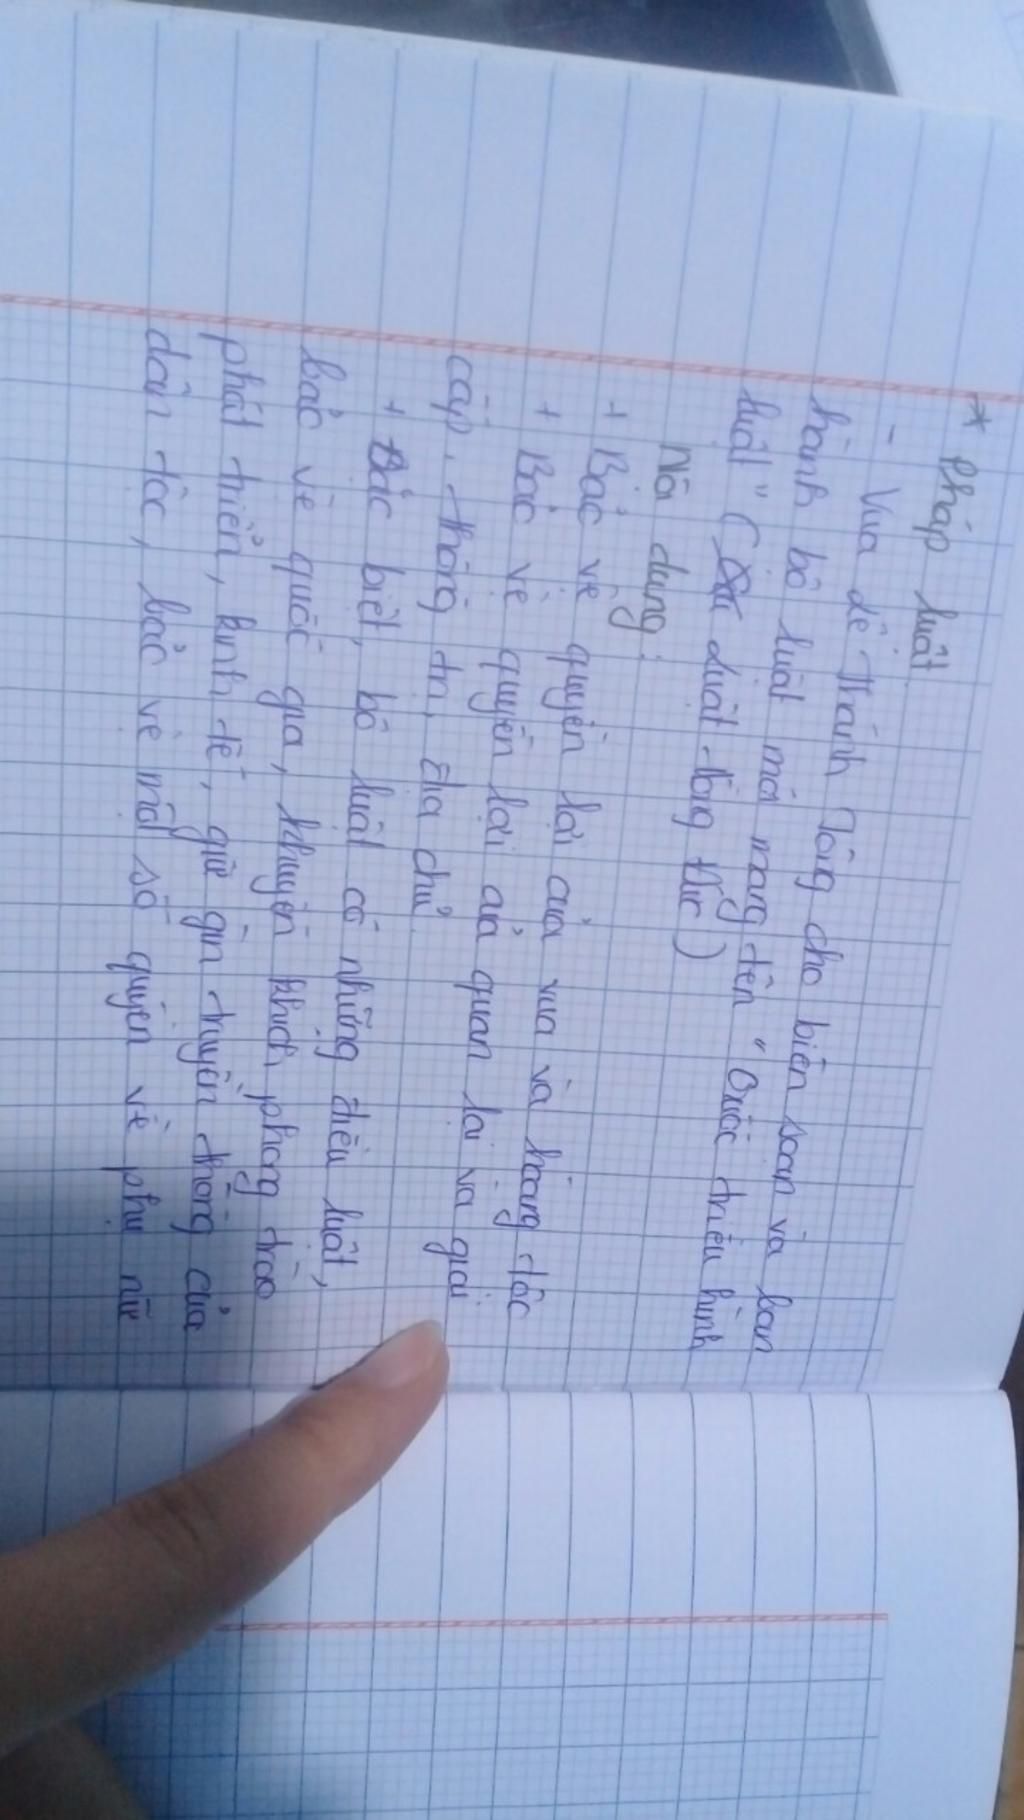 * Pháp luật
- Vua Lê Thánh Tông cho biên soạn và ban
hành bộ luật mới mang tên "Quốc triều hình
luật" ( Luật Hồng Đức )
Nội dung:
+ Bảo vệ quyền lợi của vua và hoàng tộc
+ Bảo vệ quyền lợi của quan lại và giai
cấp, thống trị, địa chủ.
+ Đặc biệt, bộ luật có những điều luật,
bảo vệ quốc gia, khuyến khích phong trào
phát triển, kinh tế, giữ gìn truyền thống của
dân tộc, bảo vệ một số quyền về phụ nữ